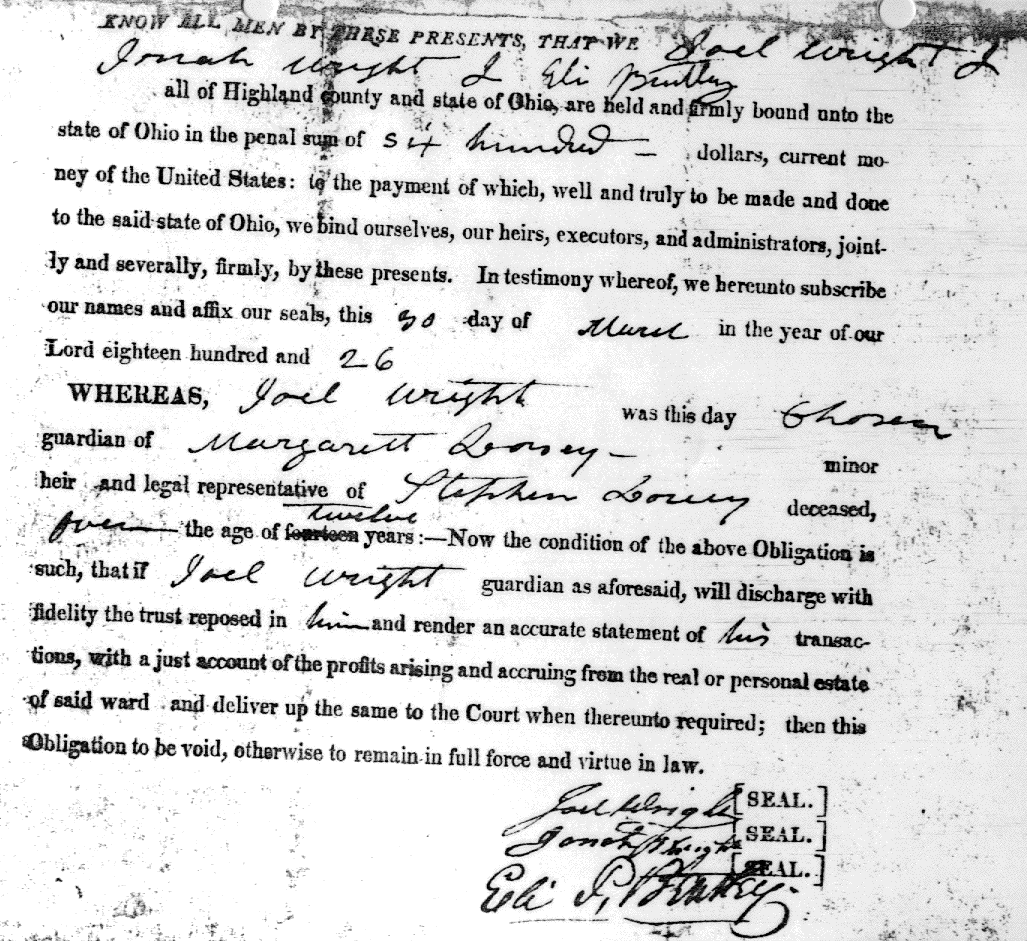 KNOW ALL MEN BY THESE PRESENTS, THAT WE Joel Wright &
Jonah Wright & Eli Bentley
all of Highland county and state of Ohio, are held and firmly bound unto the
state of Ohio in the penal sum of six hundred – dollars, current mo-
ney of the United States: to the payment of which, well and truly to be made and done
to the said state of Ohio, we bind ourselves, our heirs, executors, and administrators, joint-
ly and severally, firmly, by these presents. In testimony whereof, we hereunto subscribe
our names and affix our seals, this 30 day of March in the year of our
Lord eighteen hundred and 26
WHEREAS, Joel Wright was this day Chosen
guardian of Margarett – minor
heir and legal representative of Stephen deceased,
twelve
over the age of fourteen years:—Now the condition of the above Obligation is
such, that if Joel Wright guardian as aforesaid, will discharge with
fidelity the trust reposed in him and render an accurate statement of his transac-
tions, with a just account of the profits arising and accruing from the real or personal estate
of said ward and deliver up the same to the Court when thereunto required; then this
Obligation to be void, otherwise to remain in full force and virtue in law.
Joel Wright [SEAL.]
Jonah Wright [SEAL.]
Eli P. Bentley [SEAL.]